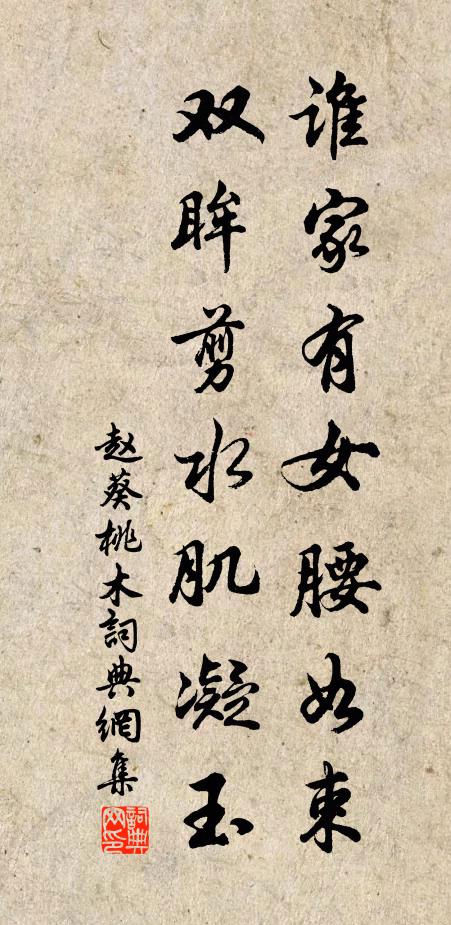 谁家有女腰如束
双眸剪水肌凝玉
赵葵桃木詞典網集
詞典
网印